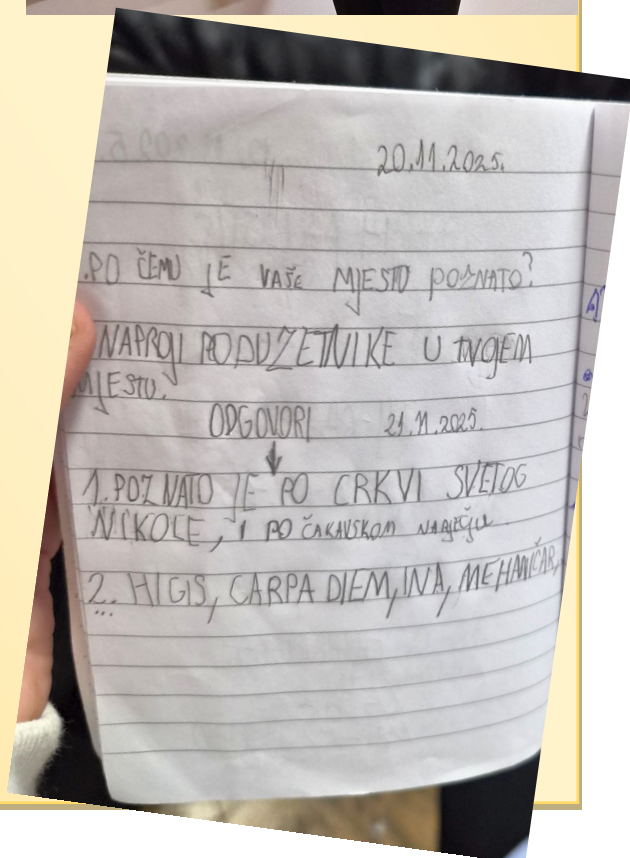 20.11.2025.
.PO ČEMU JE VAŠE MJESTO POZNATO?
NAPROJ PODUZETNIKE U TVOJEM
MJESTU.
ODGOVORI 21.11.2025.
1. POZNATO JE PO CRKVI SVETOG
NIKOLE, I PO ČAKAVSKOM NARJEČJU.
2. HIGIS, CARPA DIEM, INA, MEHANIČAR,